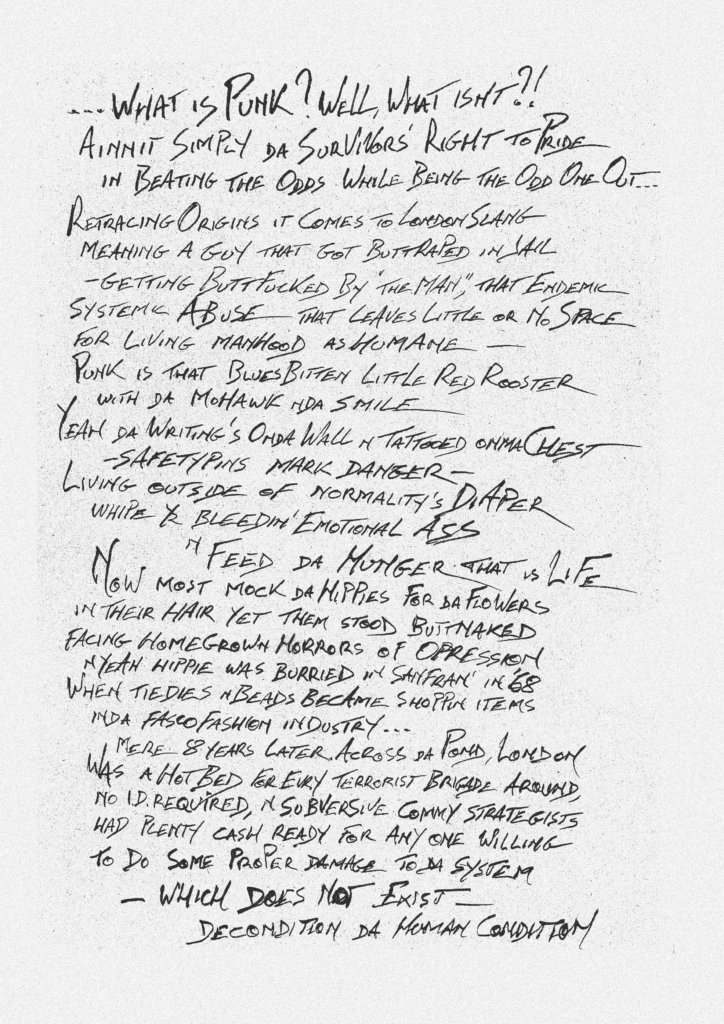 ...WHAT IS PUNK? WELL, WHAT ISNT?!
AINNIT SIMPLY DA SURVIVORS' RIGHT TO PRIDE
IN BEATING THE ODDS WHILE BEING THE ODD ONE OUT...
RETRACING ORIGINS IT COMES TO LONDON SLANG
MEANING A GUY THAT GOT BUTTRAPED IN JAIL
-GETTING BUTTFUCKED BY "THE MAN", THAT ENDEMIC
SYSTEMIC ABUSE THAT LEAVES LITTLE OR NO SPACE
FOR LIVING MANHOOD AS HUMANE —
PUNK IS THAT BLUESBITTEN LITTLE RED ROOSTER
WITH DA MOHAWK NDA SMILE
YEAH DA WRITING'S ONDA WALL N TATTOOED ONMA CHEST
-SAFETYPINS MARK DANGER-
LIVING OUTSIDE OF NORMALITY'S DIAPER
WHIPE YR BLEEDIN' EMOTIONAL ASS
'N FEED DA HUNGER THAT IS LIFE
NOW MOST MOCK DA HIPPIES FOR DA FLOWERS
IN THEIR HAIR YET THEM STOOD BUTTNAKED
FACING HOMEGROWN HORRORS OF OPRESSION
'N YEAH HIPPIE WAS BURRIED IN SANFRAN' IN '68
WHEN TIEDIES N BEADS BECAME SHOPPIN ITEMS
INDA FASCOFASHION INDUSTRY...
MERE 8 YEARS LATER ACROSS DA POND, LONDON
WAS A HOTBED FOR EVRY TERRORIST BRIGADE AROUND,
NO I.D. REQUIRED, N SUBVERSIVE COMMY STRATEGISTS
HAD PLENTY CASH READY FOR ANYONE WILLING
TO DO SOME PROPER DAMAGE TO DA SYSTEM
— WHICH DOES NOT EXIST —
DECONDITION DA HUMAN CONDITION